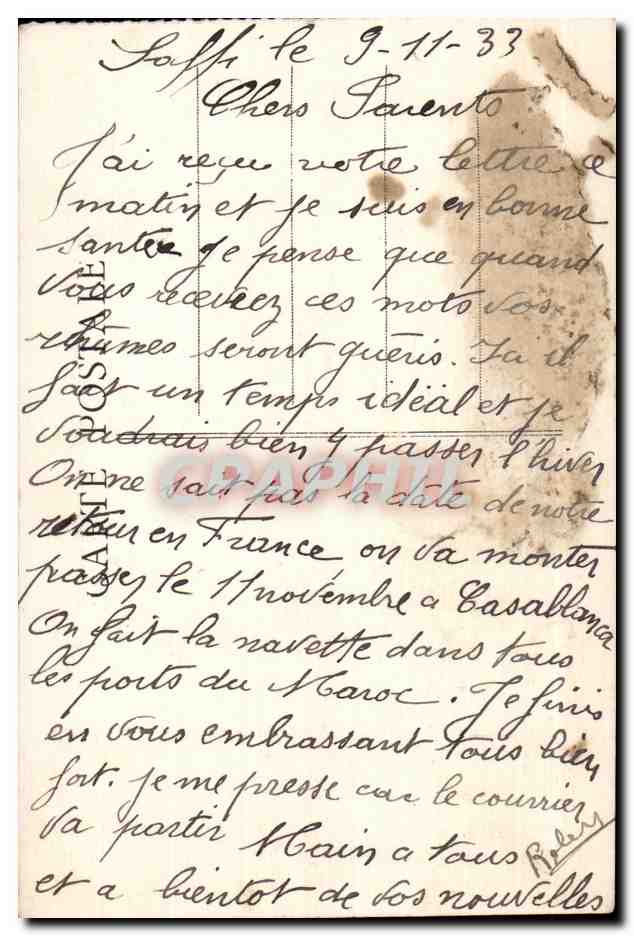 Saffi le 9-11-33
Chers Parents
J'ai reçu votre lettre ce
matin et je suis en bonne
santée je pense que quand
vous recevrez ces mots vos
rhumes seront guéris. Ici il
fait un temps idëal et je
voudrais bien y passer l'hiver
On ne sait pas la date de notre
retour en France, on va monter
passer le 11 novembre a Casablanca
On fait la navette dans tous
les ports du Maroc. Je finis
en vous embrassant tous bien
fort. je me presse car le courrier
va partir Main a tous
et a bientot de vos nouvelles
Robert
CARTE POSTALE
CPAPHIL